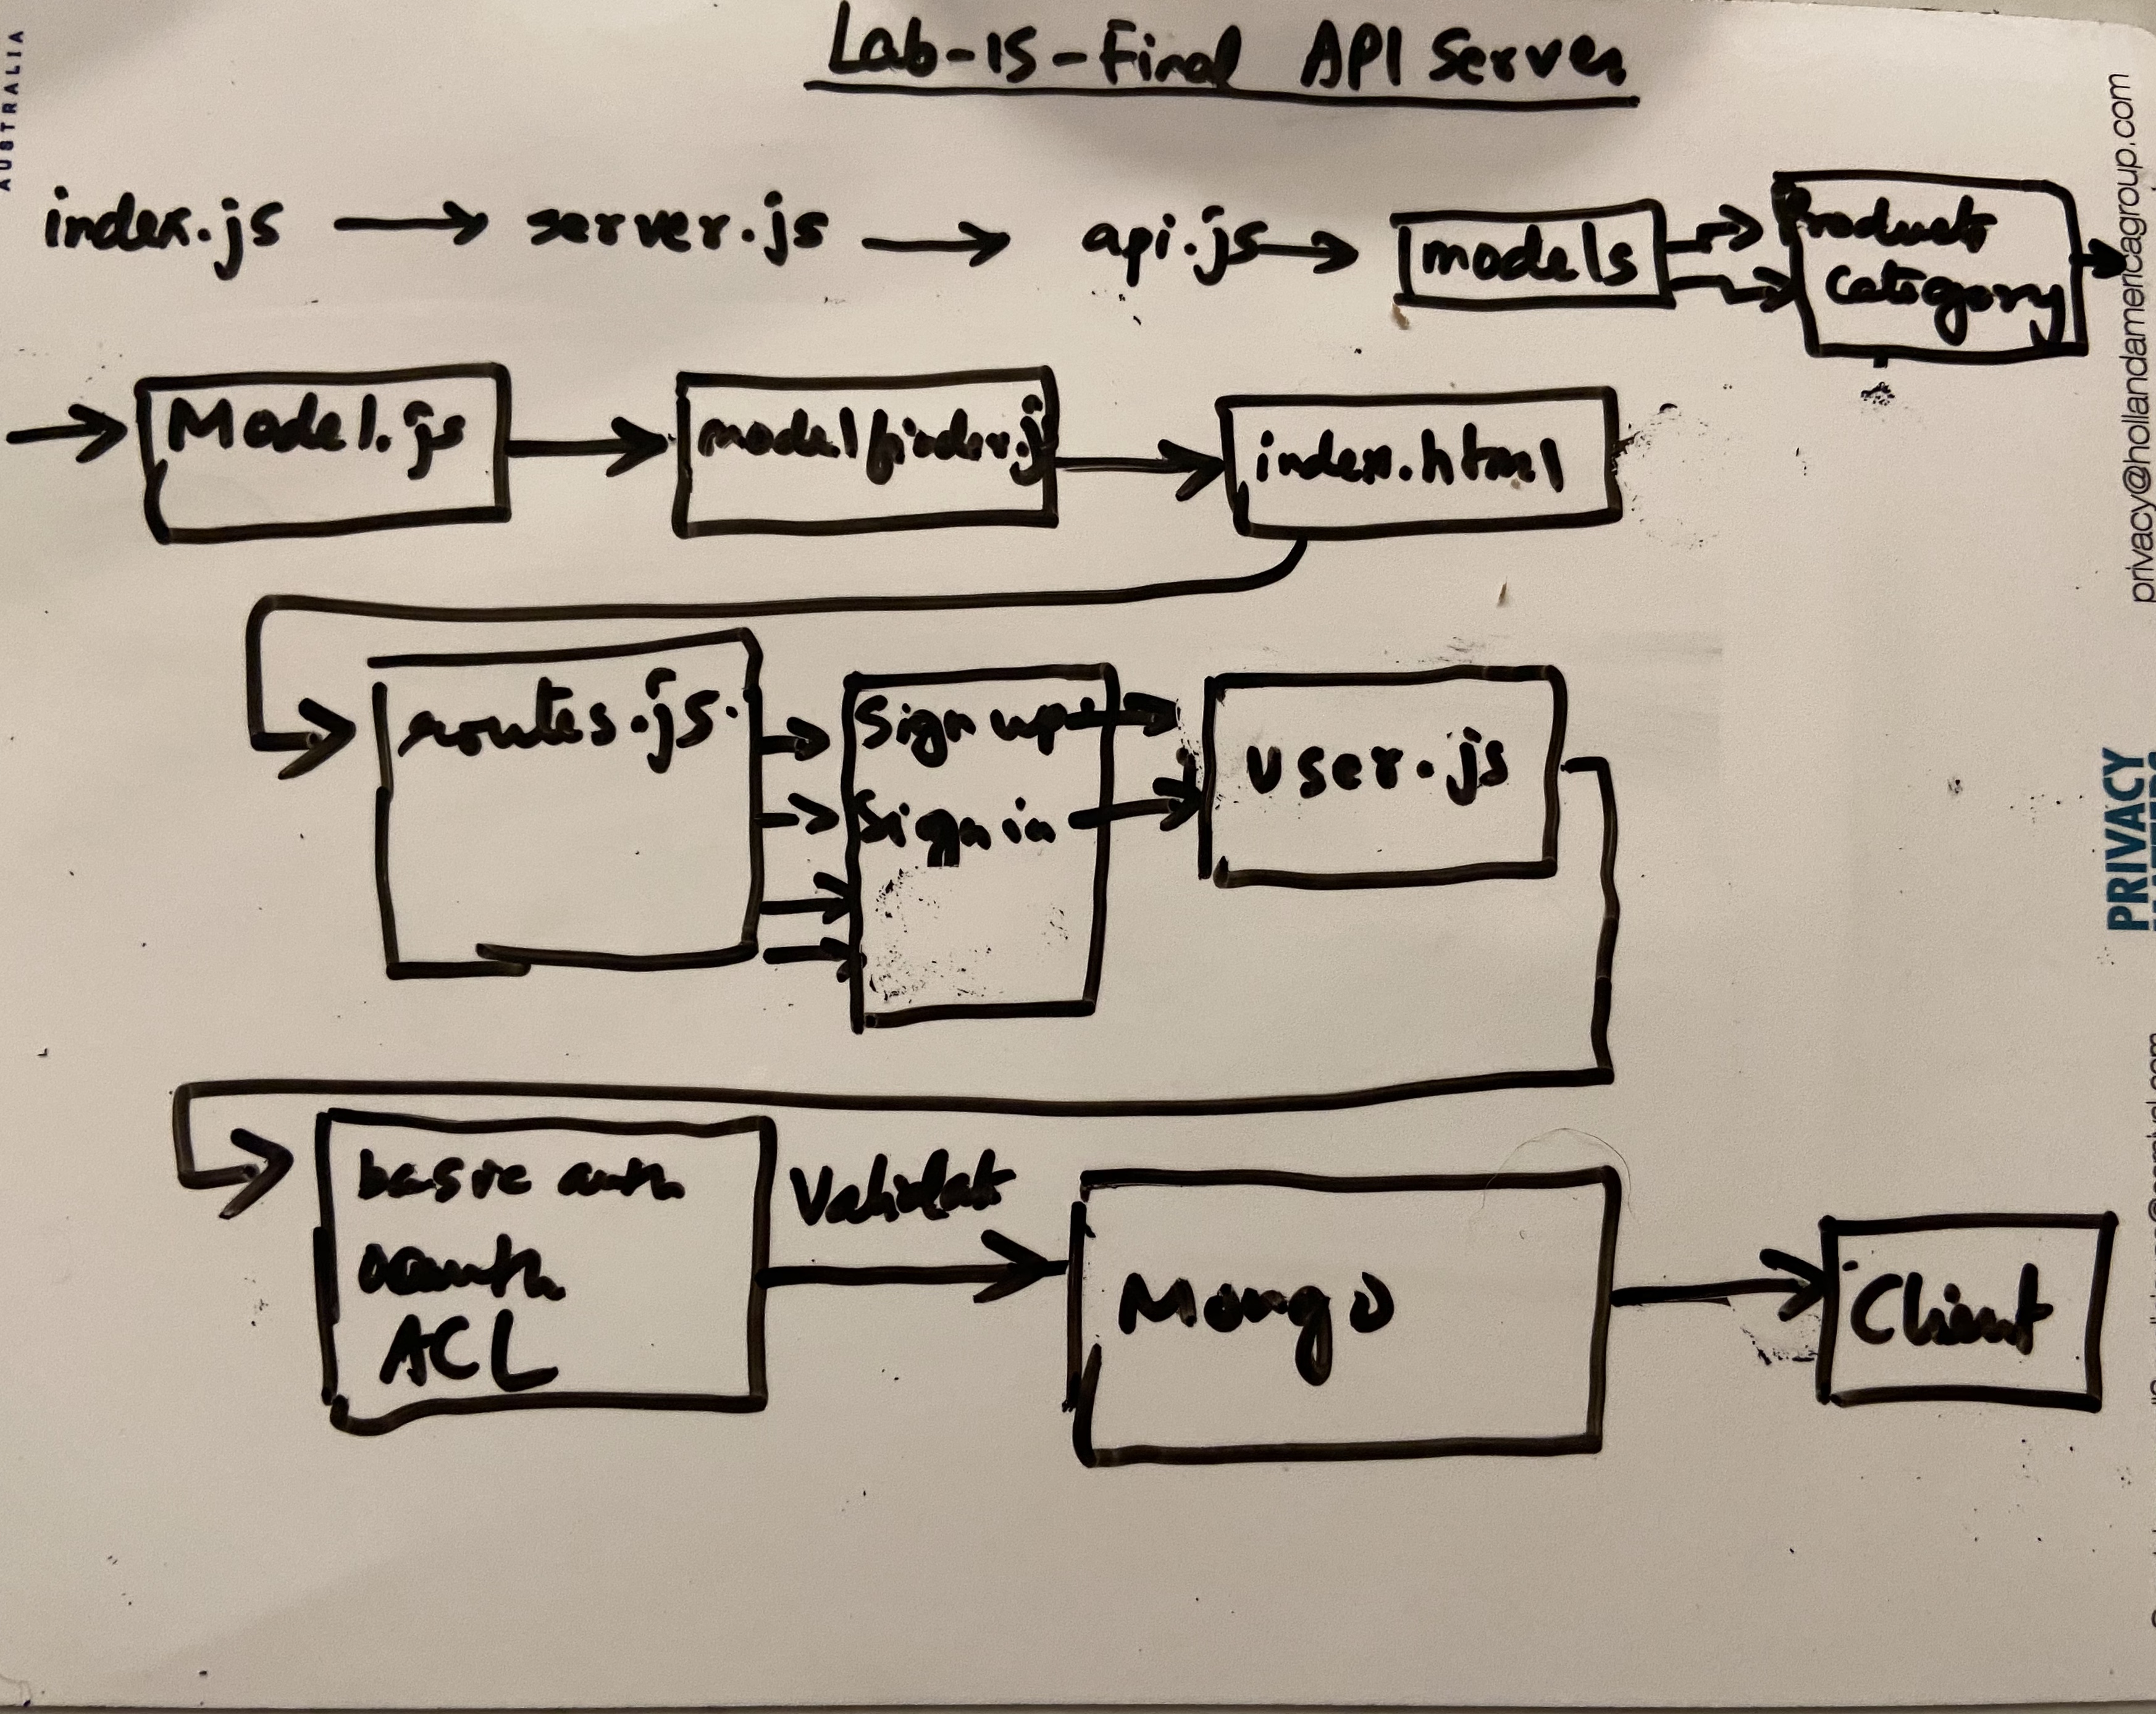 Lab-15-Final API Server
index.js → server.js → api.js → models → Products
Category
→ Model.js → modelfinder.j → index.html
routes.js. → Sign up → user.js
Sign in
basic auth
oauth
ACL
Validate
Mongo → Client
AUSTRALIA
privacy@hollandamericagroup.com
PRIVACY